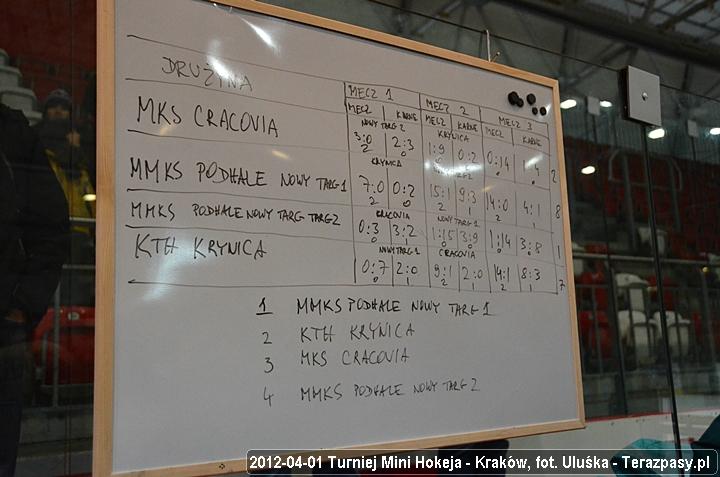 DRUŻYNA MECZ 1 MECZ 2 MECZ 3
MECZ KARNE MECZ KARNE MECZ KARNE
NOWY TARG 2 KRYNICA
MKS CRACOVIA 3:0 2:3 1:9 0:2 0:14 1:4
2 0 0 0 0 0 2
KRYNICA NOWY TARG 2
MMKS PODHALE NOWY TARG 1 7:0 0:2 15:1 9:3 14:0 4:1
2 0 2 1 2 1 8
CRACOVIA NOWY TARG 1
MMKS PODHALE NOWY TARG TARG 2 0:3 3:2 1:15 3:9 1:14 3:8
0 1 0 0 0 0 1
NOWY TARG 1 CRACOVIA
KTH KRYNICA 0:7 2:0 9:1 2:0 14:1 8:3
0 1 2 1 2 1 7
1 MMKS PODHALE NOWY TARG 1
2 KTH KRYNICA
3 MKS CRACOVIA
4 MMKS PODHALE NOWY TARG 2
2012-04-01 Turniej Mini Hokeja - Kraków, fot. Uluśka - Terazpasy.pl